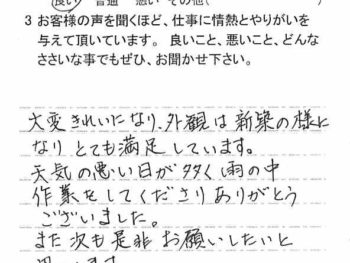 良い 普通 悪い その他( )
3 お客様の声を聞くほど、仕事に情熱とやりがいを
与えて頂いています。良いこと、悪いこと、どんな
ささいな事でもぜひ、お聞かせ下さい。
大変きれいになり、外観は新築の様に
なり とても満足しています。
天気の悪い日が多く雨の中
作業をしてくださりありがとう
ございました。
また次も是非お願いしたいと
思います